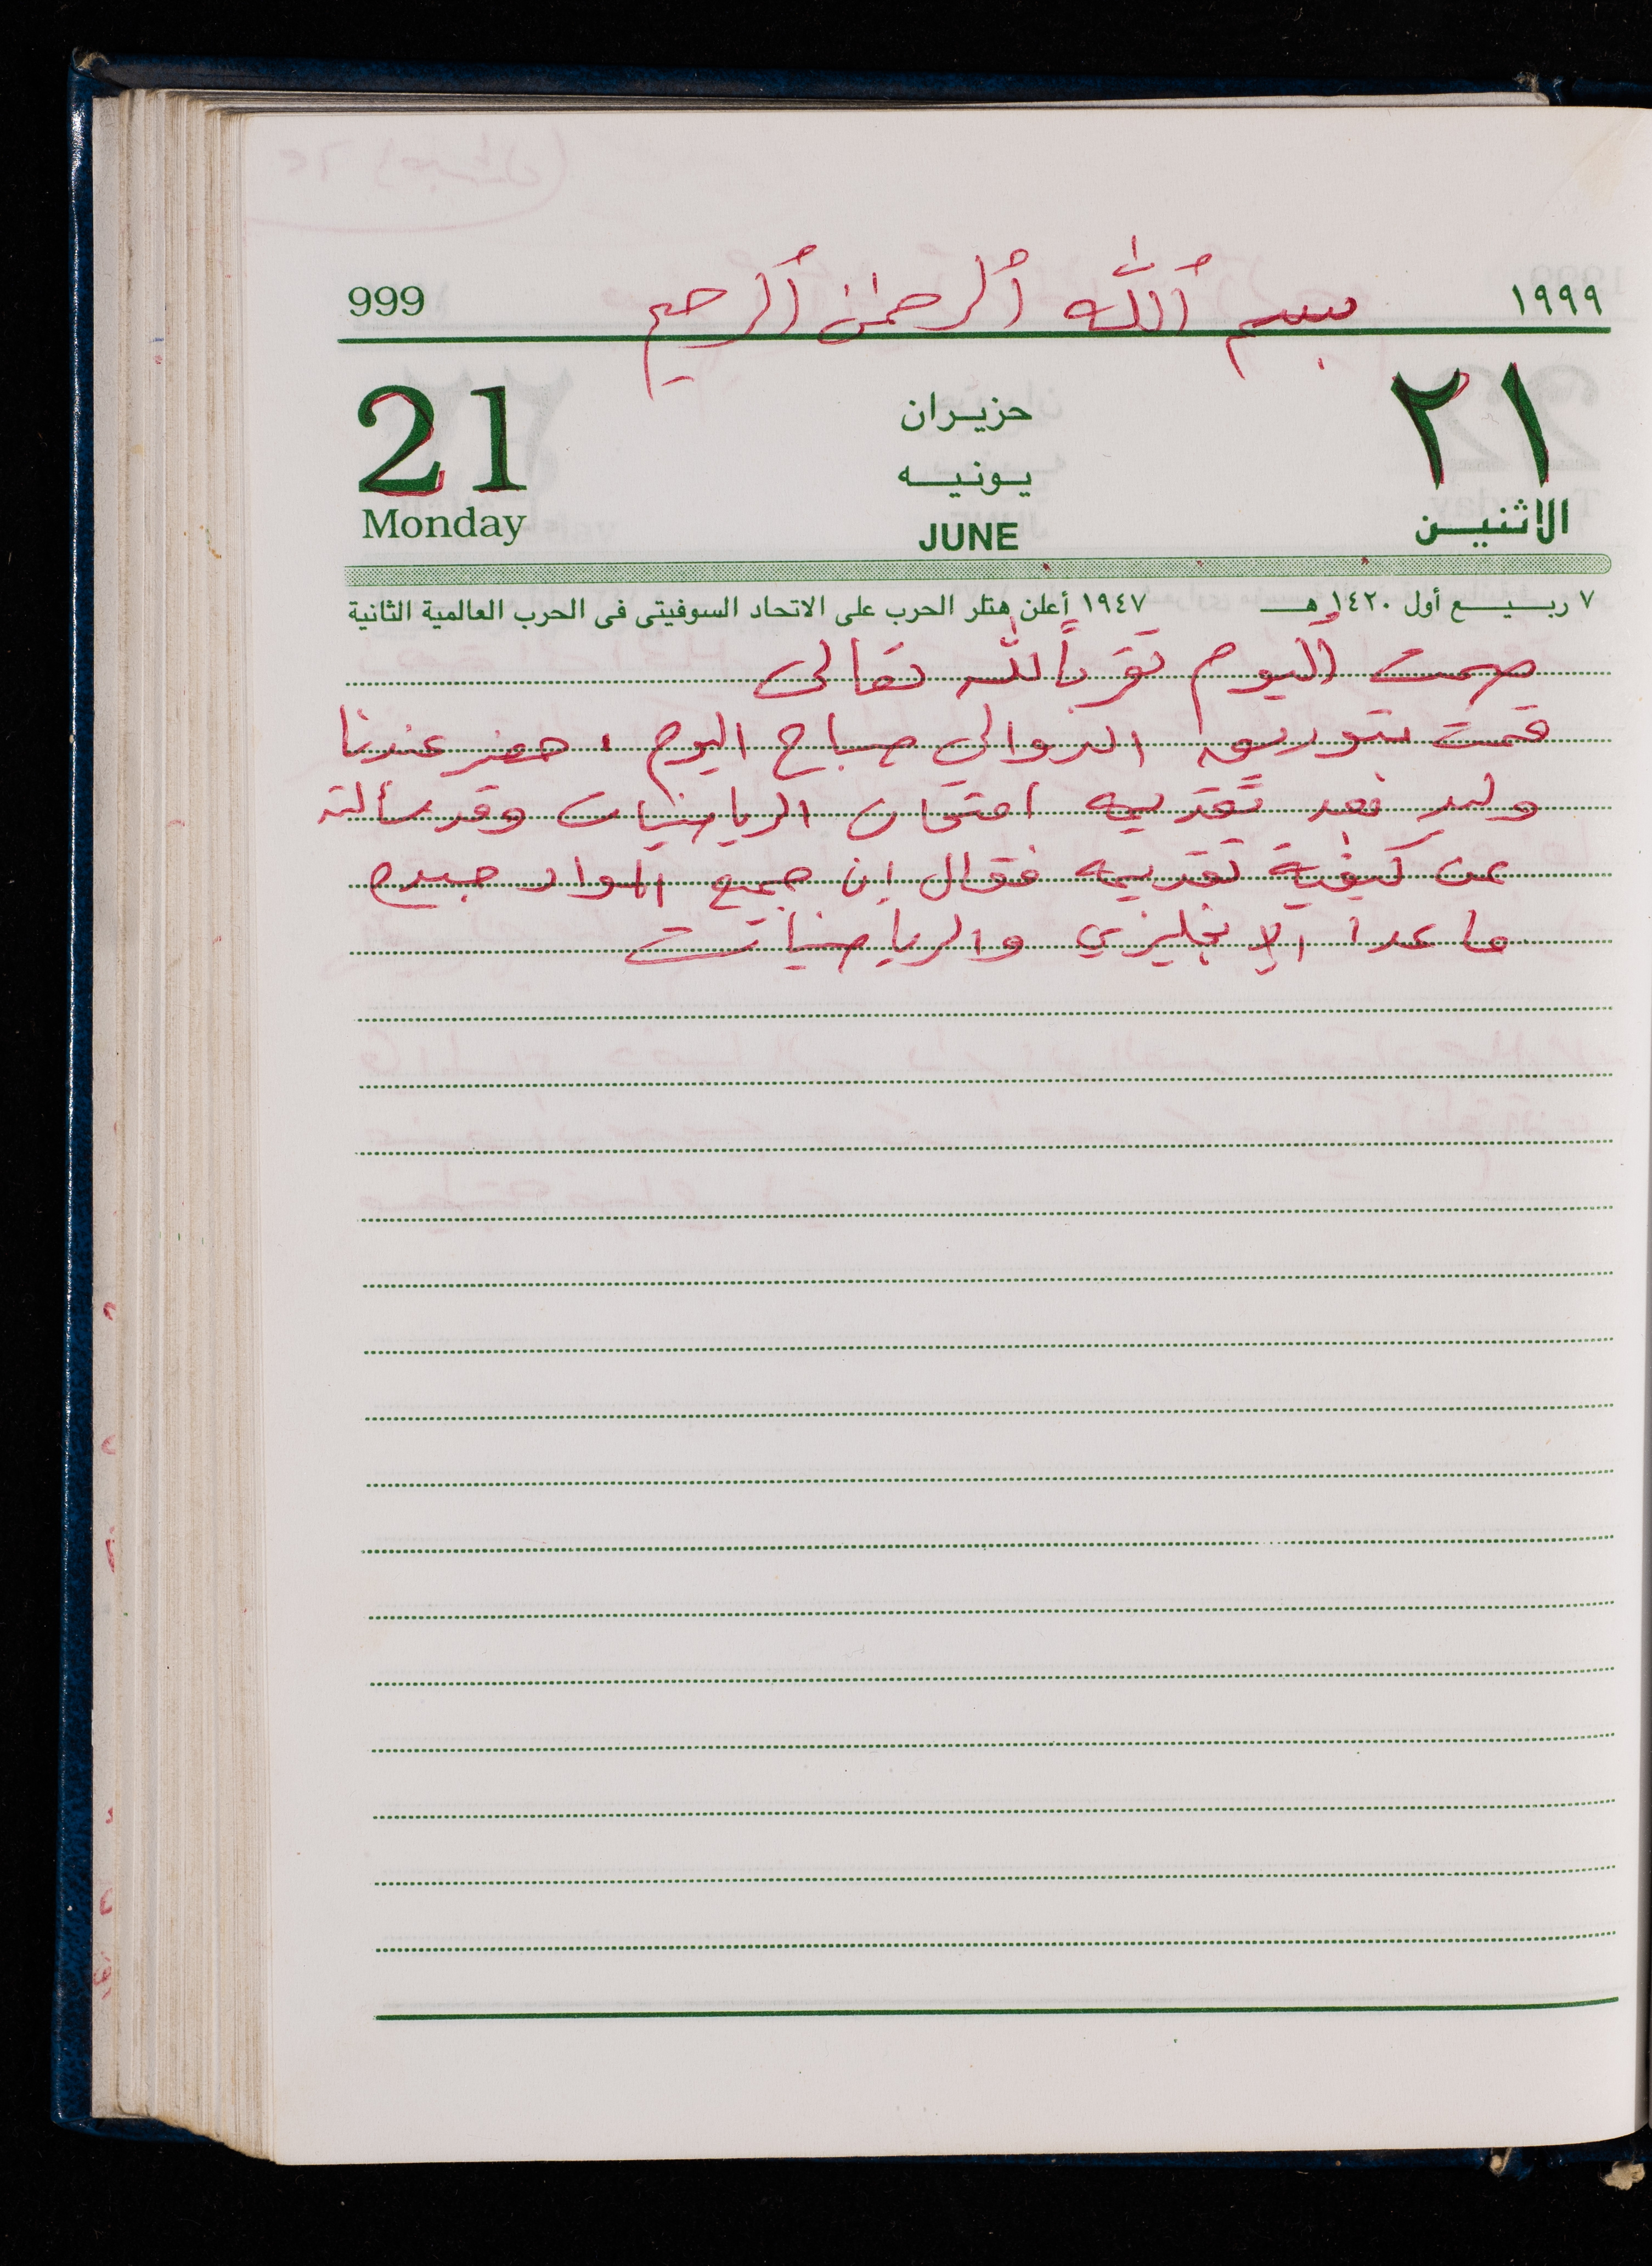 999 بسم ٱللّٰه ٱلرحمٰن ٱلرحيم ١٩٩٩
21 حزيران ٢١
يونيه
Monday JUNE الاثنين
٧ ربيع أول ١٤٢٠ هـ ١٩٤٧ أعلن هتلر الحرب على الاتحاد السوفيتى فى الحرب العالمية الثانية
صمت اليوم تقرباً لله تعالى
قمت بتوريق الدوالي صباح اليوم، حضر عندنا
وليد بعد تقديمه امتحان الرياضيات وقد سألته
عن كيفية تقديمه فقال إن جميع المواد جيده
ما عدا الإنجليزي والرياضيات